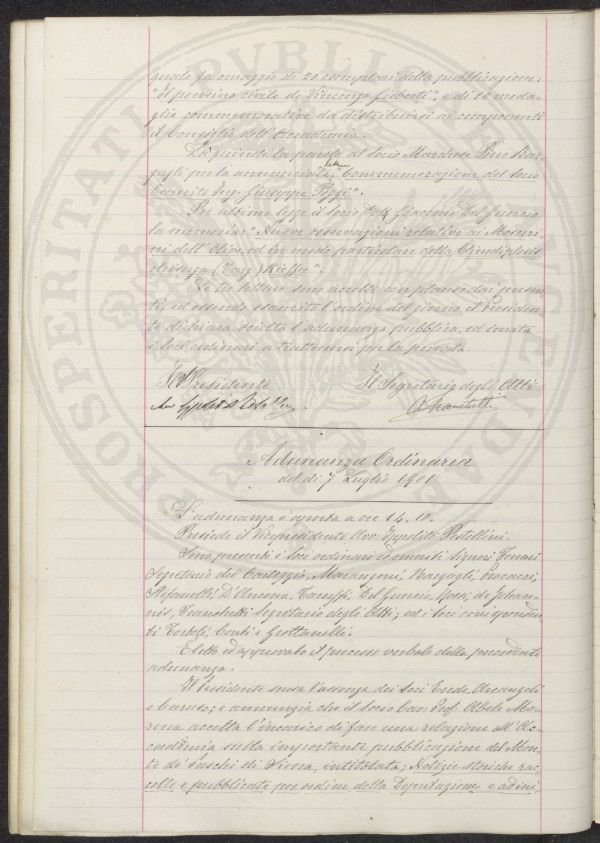 quale fa omaggio di 20 esemplari della pubblicazione:
"Il pensiero civile di Vincenzo Gioberti", e di 10 meda-
glie commemorative da distribuirsi ai componenti
il Consiglio dell'Accademia.
Dà quindi la parola al socio Marchese Piero Bar-
gagli per la annunciata lettura "Commemorazione del socio
Emerito Ing. Giuseppe Pozzi".
Per ultimo legge il socio Dott. Giacomo Del Guercio
la memoria: "Nuove osservazioni relative ai Moscеri-
ni dell'Olivo, ed in modo particolare della Clinodiplosis
oleisuga (Targ.) Kieffer".
Le tre letture sono accolte con plauso dai presen-
ti, ed essendo esaurito l'ordine del giorno il Presiden-
te dichiara sciolta l'adunanza pubblica, ed invita
i soci ordinari a trattenersi per la privata.
Il Presidente Il Segretario degli Atti
Adunanza Ordinaria
del dì 7 Luglio 1901
L'adunanza è aperta a ore 14,10.
Presiede il Vicepresidente Avv. Ippolito Pestellini.
Sono presenti i soci ordinari ed emeriti Signori Ferrari
Segretario del Carteggio, Marangoni, Bargagli, Procacci,
Stefanelli, D'Ancona, Caruffi, Del Guercio, Roster, de Johan-
nis, Franchetti Segretario degli Atti; ed i soci corrisponden-
ti Tortoli, Conti e Grottanelli.
È letto ed approvato il processo verbale della precedente
adunanza.
Il Presidente scusa l'assenza dei soci Erede, Arcangeli
e Caruso; e annunzia che il socio Cav. Prof. Abele Mo-
rena accetta l'incarico di fare una relazione all'Ac-
cademia sulla importante pubblicazione del Mon-
te de' Paschi di Siena, intitolata; Notizie storiche rac-
colte e pubblicate per ordine della Deputazione e admi-
PROSPERITATI PVBLICAE AVGENDAE